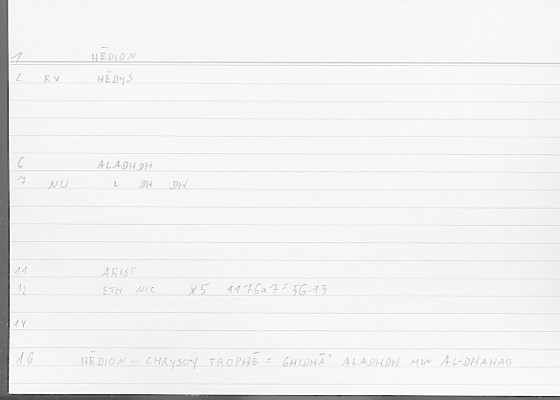 1 HĒDION
2 RV HĒDYS
6 ALADHDH
7 NU L DH DH
11 ARIST
12 ETH NIC X5 1176a7 = 56.13
14
16 HĒDION ... CHRYSOY TROPHĒ = GHIDHĀ' ALADHDH MIN AL-DHAHAB